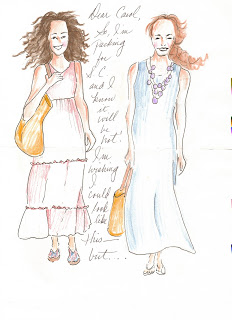 Dear Carol,
So, I'm
packing
for
SC
and I
know
it
will
be
hot.
I'm
wishing
I
could
look
like
this—
but....